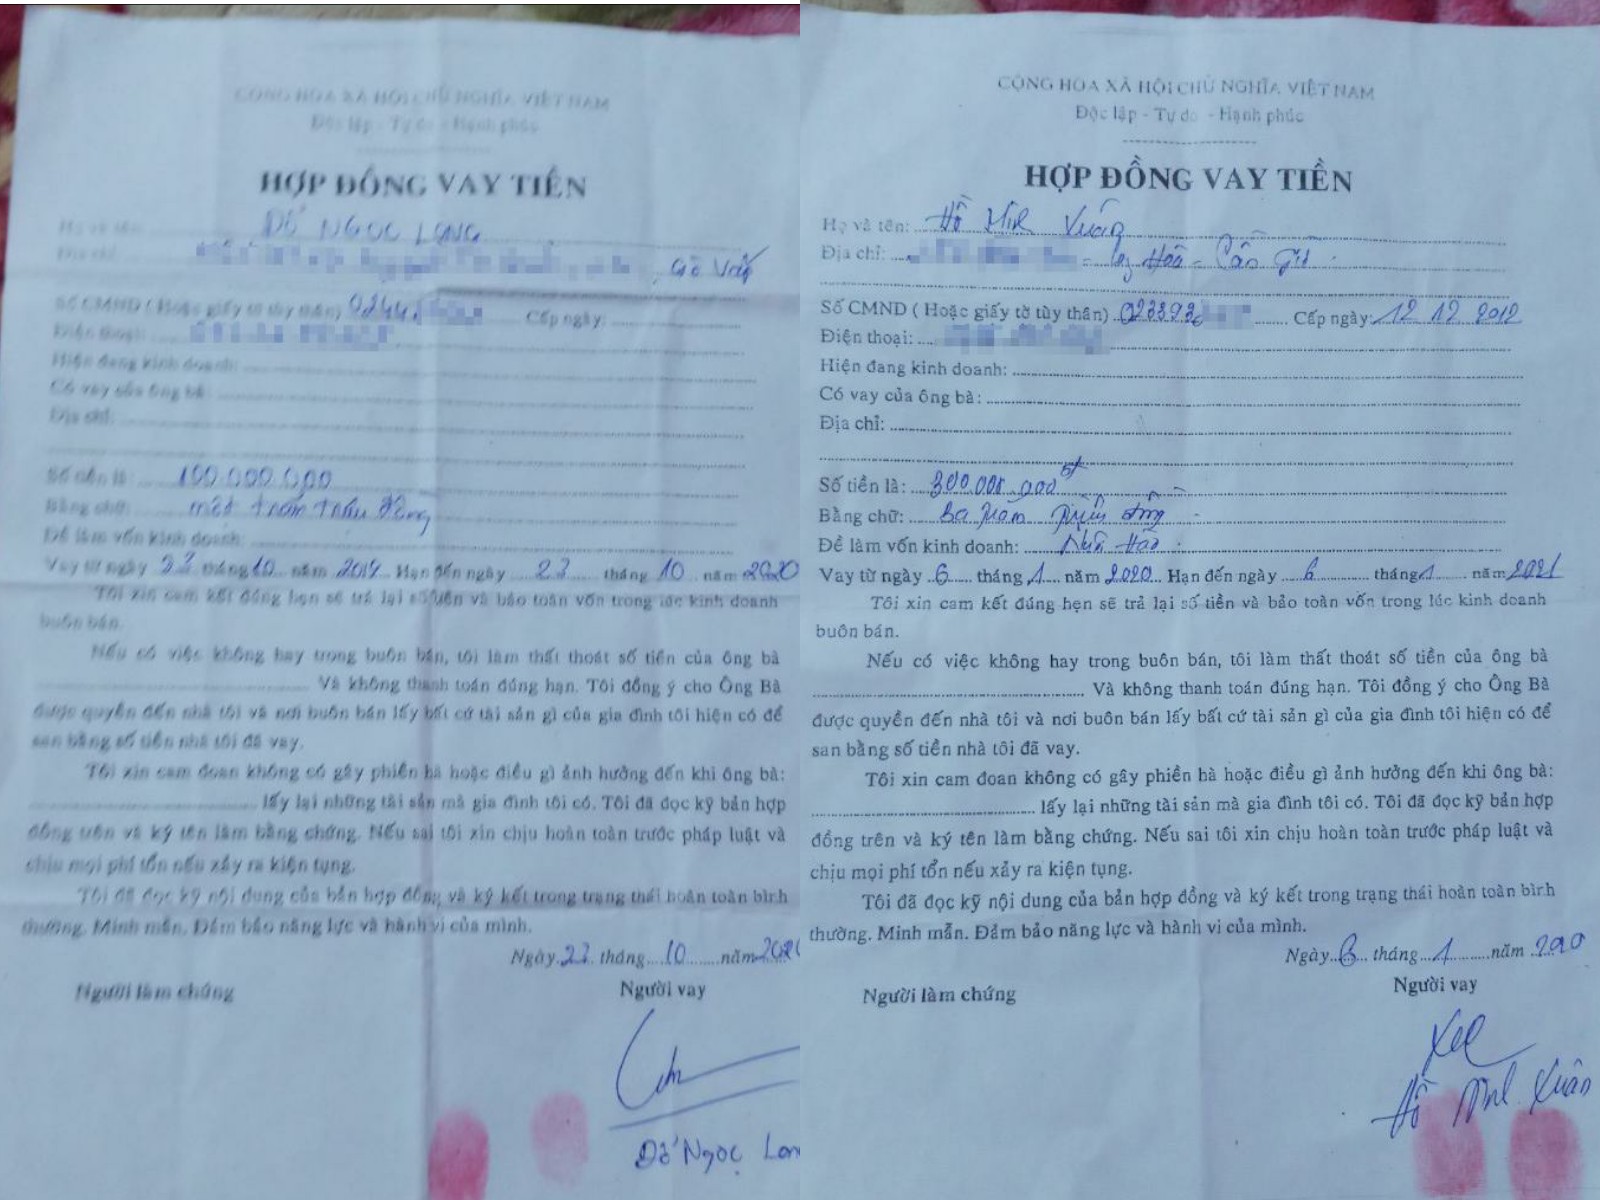 CỘNG HÒA XÃ HỘI CHỦ NGHĨA VIỆT NAM
Độc lập - Tự do - Hạnh phúc
HỢP ĐỒNG VAY TIỀN
Họ và tên: ĐỖ NGỌC LONG
Địa chỉ: , Gò Vấp
Số CMND ( Hoặc giấy tờ tùy thân) 0244 Cấp ngày:
Điện thoại:
Hiện đang kinh doanh:
Có vay của ông bà :
Địa chỉ:
Số tiền là : 100.000.000
Bằng chữ: một trăm triệu đồng
Để làm vốn kinh doanh:
Vay từ ngày tháng 10 năm 2019 Hạn đến ngày tháng 10 năm 2020
Tôi xin cam kết đúng hẹn sẽ trả lại số tiền và bảo toàn vốn trong lúc kinh doanh
buôn bán.
Nếu có việc không hay trong buôn bán, tôi làm thất thoát số tiền của ông bà
Và không thanh toán đúng hạn. Tôi đồng ý cho Ông Bà
được quyền đến nhà tôi và nơi buôn bán lấy bất cứ tài sản gì của gia đình tôi hiện có để
san bằng số tiền nhà tôi đã vay.
Tôi xin cam đoan không có gây phiền hà hoặc điều gì ảnh hưởng đến khi ông bà:
lấy lại những tài sản mà gia đình tôi có. Tôi đã đọc kỹ bản hợp
đồng trên và ký tên làm bằng chứng. Nếu sai tôi xin chịu hoàn toàn trước pháp luật và
chịu mọi phí tổn nếu xảy ra kiện tụng.
Tôi đã đọc kỹ nội dung của bản hợp đồng và ký kết trong trạng thái hoàn toàn bình
thường. Minh mẫn. Đảm bảo năng lực và hành vi của mình.
Ngày tháng 10 năm
Người làm chứng Người vay
Đỗ Ngọc Lon
CỘNG HÒA XÃ HỘI CHỦ NGHĨA VIỆT NAM
Độc lập - Tự do - Hạnh phúc
HỢP ĐỒNG VAY TIỀN
Họ và tên: Hồ Xuân
Địa chỉ: Hòa - Cần Giờ
Số CMND ( Hoặc giấy tờ tùy thân) 023893 Cấp ngày: 12 12 2012
Điện thoại:
Hiện đang kinh doanh:
Có vay của ông bà :
Địa chỉ:
Số tiền là: 300.000.000 đ
Bằng chữ: Ba trăm triệu đồng
Để làm vốn kinh doanh:
Vay từ ngày 6 tháng 1 năm 2020 Hạn đến ngày 6 tháng 1 năm 2021
Tôi xin cam kết đúng hẹn sẽ trả lại số tiền và bảo toàn vốn trong lúc kinh doanh
buôn bán.
Nếu có việc không hay trong buôn bán, tôi làm thất thoát số tiền của ông bà
Và không thanh toán đúng hạn. Tôi đồng ý cho Ông Bà
được quyền đến nhà tôi và nơi buôn bán lấy bất cứ tài sản gì của gia đình tôi hiện có để
san bằng số tiền nhà tôi đã vay.
Tôi xin cam đoan không có gây phiền hà hoặc điều gì ảnh hưởng đến khi ông bà:
lấy lại những tài sản mà gia đình tôi có. Tôi đã đọc kỹ bản hợp
đồng trên và ký tên làm bằng chứng. Nếu sai tôi xin chịu hoàn toàn trước pháp luật và
chịu mọi phí tổn nếu xảy ra kiện tụng.
Tôi đã đọc kỹ nội dung của bản hợp đồng và ký kết trong trạng thái hoàn toàn bình
thường. Minh mẫn. Đảm bảo năng lực và hành vi của mình.
Ngày 6 tháng 1 năm 2020
Người làm chứng Người vay
Hồ Xuân